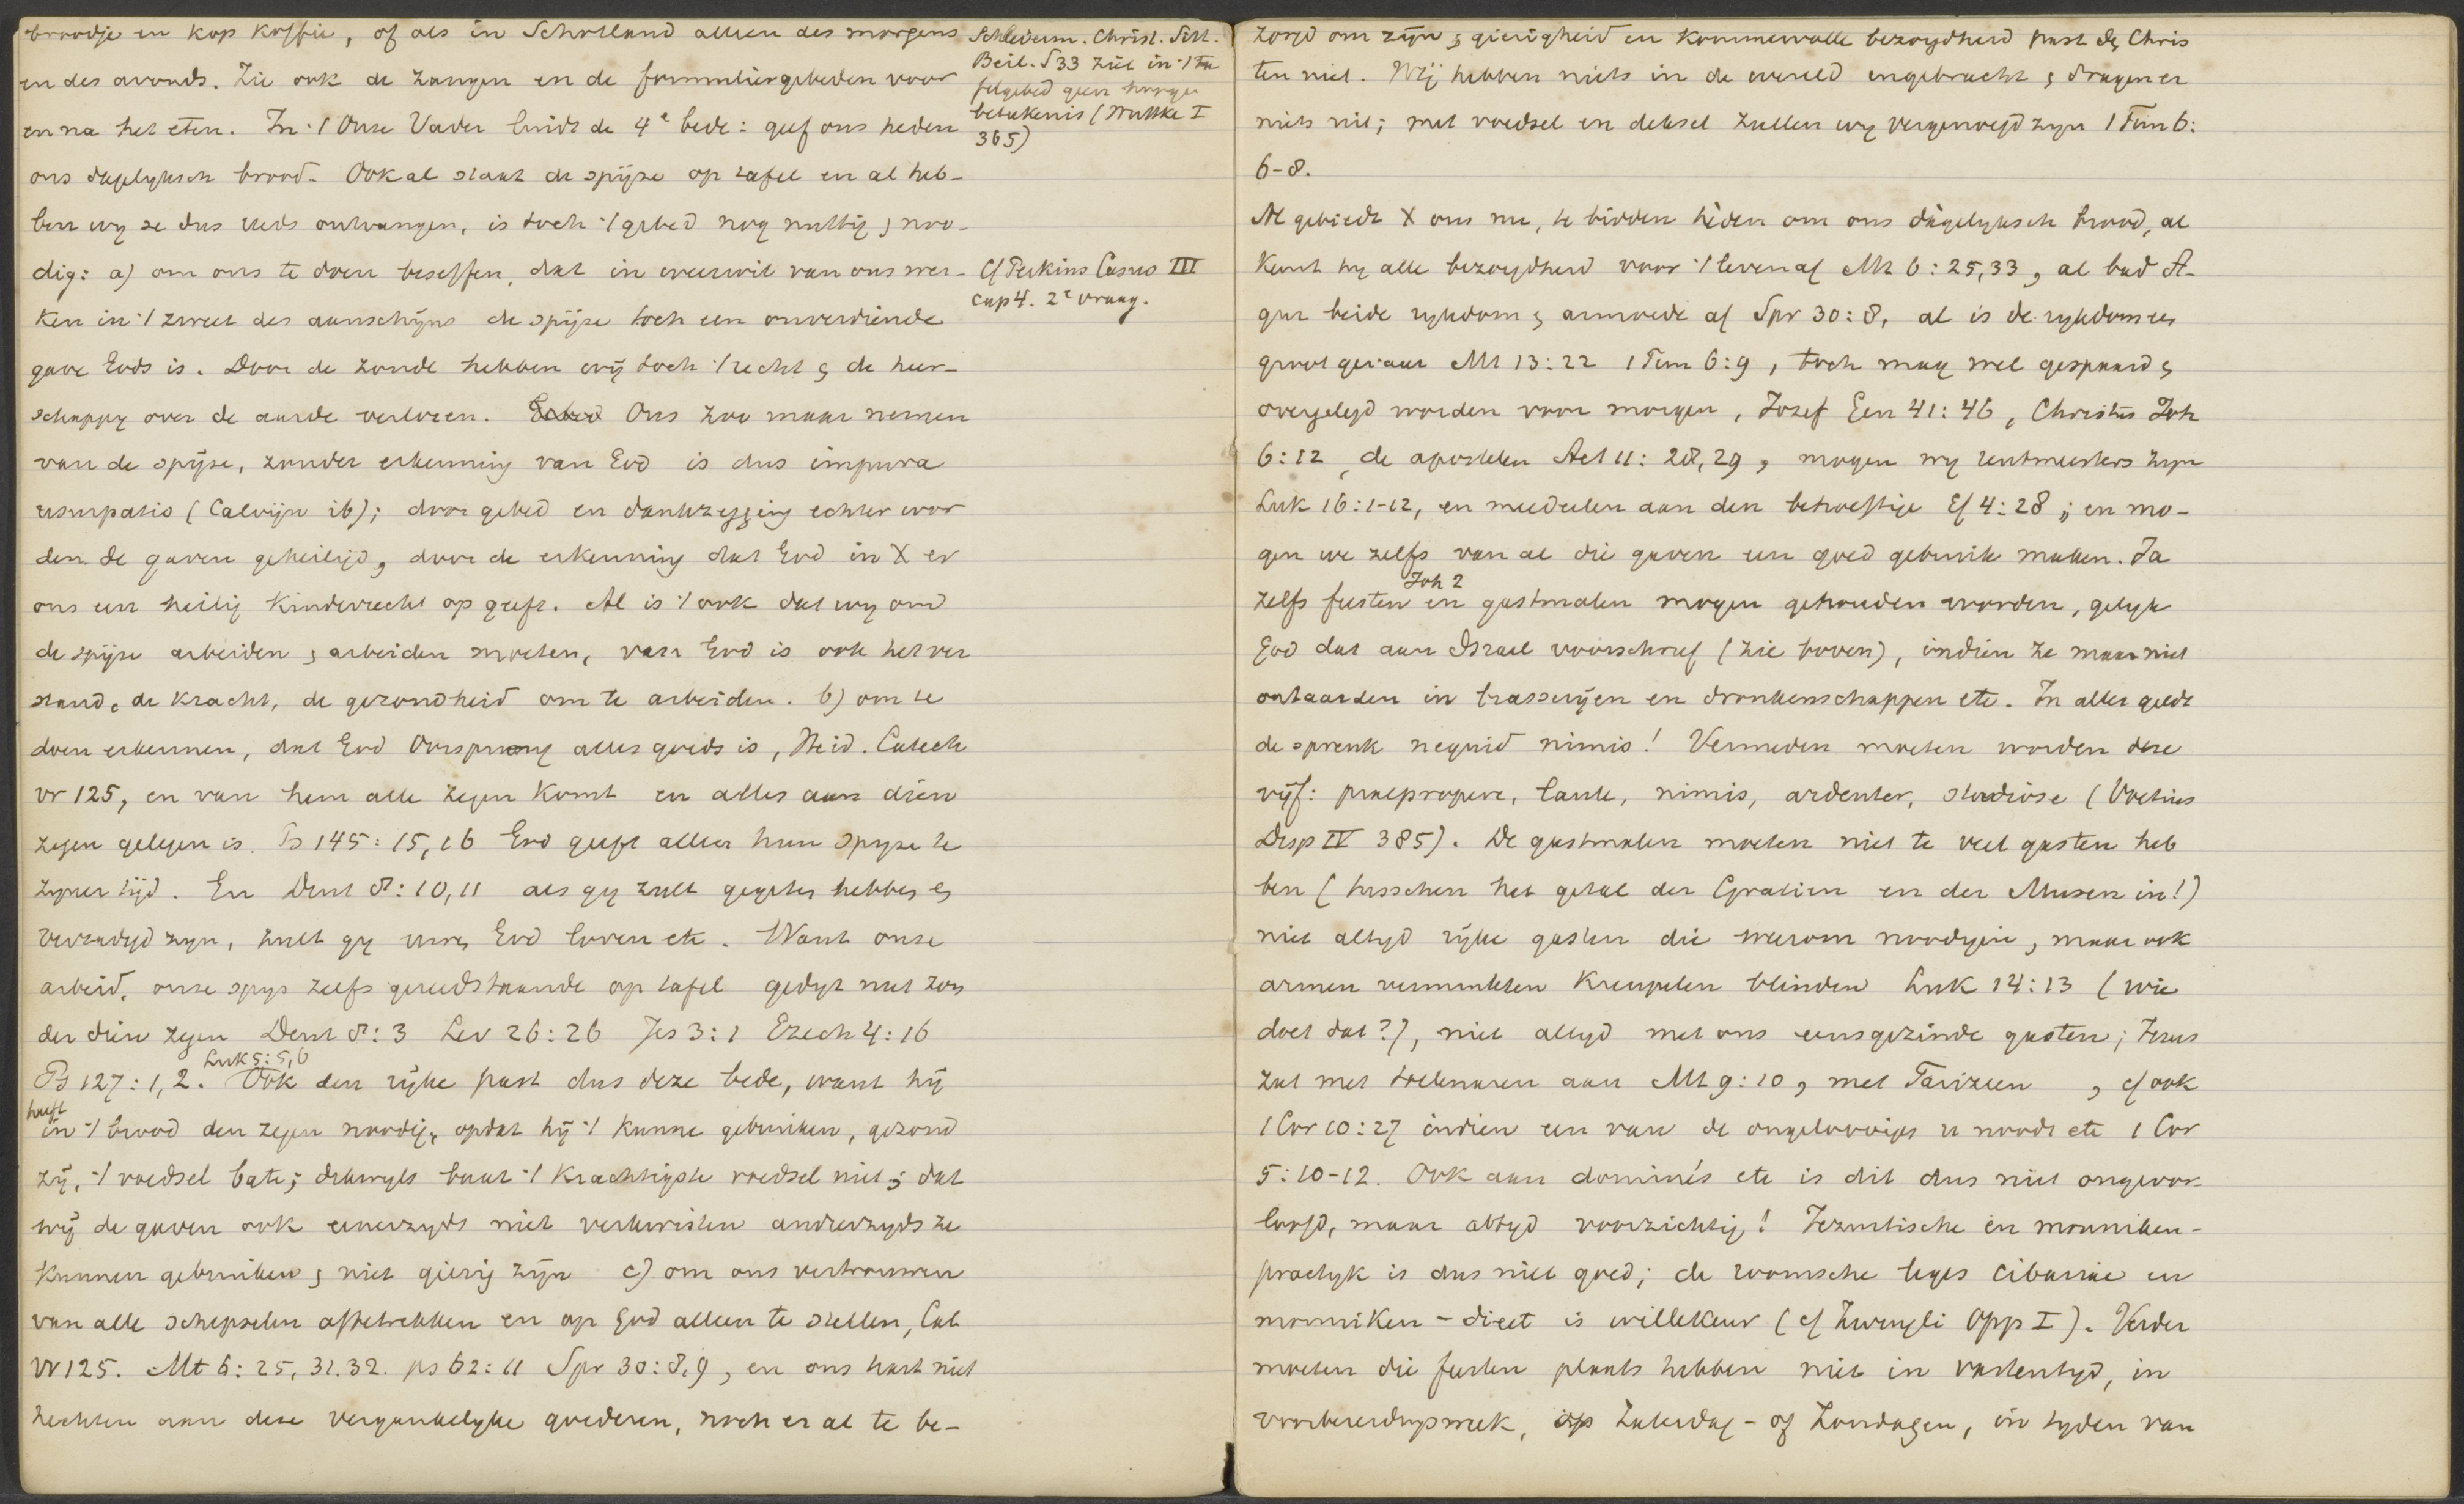 broodje en kop koffie, of als in Schotland alleen des morgens
en des avonds. Zie ook de zangen en de formuliergebeden voor
en na het eten. In 't Onze Vader luidt de 4e bede: geef ons heden
ons dagelyksch brood. Ook al staat de spijze op tafel en al heb-
ben wy ze dus reeds ontvangen, is toch 't gebed nog nuttig & noo-
dig: a) om ons te doen beseffen, dat in weerwil van ons wer-
ken in 't zweet des aanschijns de spijze toch een onverdiende
gave Gods is. Door de zonde hebben wij toch 't recht & de heer-
schappy over de aarde verloren. Ons zoo maar nemen
van de spijze, zonder erkenning van God is dus impura
usurpatio (Calvijn ib); door gebed en dankzegging echter wor
den de gaven geheiligd, door de erkenning dat God in X er
ons een heilig kinderrecht op geeft. Al is 't ook dat wy om
de spijze arbeiden & arbeiden moeten, van God is ook het ver
stand, de kracht, de gezondheid om te arbeiden. b) om te
doen erkennen, dat God Oorsprong alles goeds is, Heid. Catech
vr 125, en van hem alle zegen komt en alles aan dien
zegen gelegen is. Ps 145: 15, 16 God geeft allen hun spyze te
zyner tijd. En Deut 8: 10, 11 als gy zult gegeten hebben &
verzadigd zyn, zult gy uwen God loven etc. Want onze
arbeid, onze spys zelfs gereedstaande op tafel gedyt niet zon
der dien zegen Deut 8: 3 Lev 26: 26 Jes 3: 1 Ezech 4: 16
Luk 5: 5, 6
Ps 127: 1, 2. Ook den rijke past dus deze bede, want hij
heeft
in 't brood den zegen noodig, opdat hij 't kunne gebruiken, gezond
zij, 't voedsel bate; dikwyls baat 't krachtigste voedsel niet; dat
wij de gaven ook eenerzyds niet verkwisten anderzyds ze
kunnen gebruiken & niet gierig zijn c) om ons vertrouwen
van alle schepselen aftetrekken en op God alleen te stellen, Cat
vr 125. Mt 6: 25, 31. 32. ps 62: 11 Spr 30: 8, 9, en ons hart niet
hechten aan deze vergankelyke goederen, noch er al te be-
Schleierm. Christl. Sitt.
Beil. § 33 ziet in 't ta
felgebed geen hooge
betekenis (Wuttke I
365)
Cf Perkins Casus III
cap 4. 2e vraag.
zorgd om zijn; gierigheid en kommervolle bezorgdheid past den Chris
ten niet. Wij hebben niets in de wereld ingebracht & dragen er
niets uit; met voedsel en deksel zullen wy vergenoegd zyn 1 Tim 6:
6-8.
Al gebiedt X ons nu, te bidden heden om ons dagelyksch brood, al
keurt hy alle bezorgdheid voor 't leven af Mt 6: 25, 33, al bad A-
gur beide rykdom & armoede af Spr 30: 8, al is de rykdom een
groot gevaar Mt 13: 22 1 Tim 6: 9, toch mag wel gespaard &
overgelegd worden voor morgen, Jozef Gen 41: 46, Christus Joh
6: 12, de apostelen Act 11: 28, 29, mogen wy rentmeesters zyn
Luk 16: 1-12, en meedeelen aan den behoeftige Ef 4: 28; en mo-
gen we zelfs van al die gaven een goed gebruik maken. Ja
Joh 2
zelfs feesten en gastmalen mogen gehouden worden, gelyk
God dat aan Israel voorschreef (zie boven), indien ze maar niet
ontaarden in brasserijen en dronkenschappen etc. In alles geldt
de spreuk nequid nimis! Vermeden moeten worden deze
vijf: praepropere, laute, nimis, ardenter, studiose (Voetius
Disp IV 385). De gastmalen moeten niet te veel gasten heb
ben (tusschen het getal der Gratiën en der Musen in!)
niet altyd rijke gasten die weerom noodigen, maar ook
armen verminkten kreupelen blinden Luk 14: 13 (wie
doet dat?), niet altyd met ons eensgezinde gasten; Jezus
zat met tollenaren aan Mt 9: 10, met Farizeen , cf ook
1 Cor 10: 27 indien een van de ongelovigen u noodt etc 1 Cor
5: 10-12. Ook aan dominés etc is dit dus niet ongeoor-
loofd, maar altyd voorzichtig! Jezuitische en monniken-
practyk is dus niet goed; de roomsche leges cibariae en
monniken-dieet is willekeur (cf Zwingli Opp I). Verder
moeten die feesten plaats hebben niet in vastentyd, in
voorbereidingsweek, op Zaterdag- of Zondagen, in tyden van